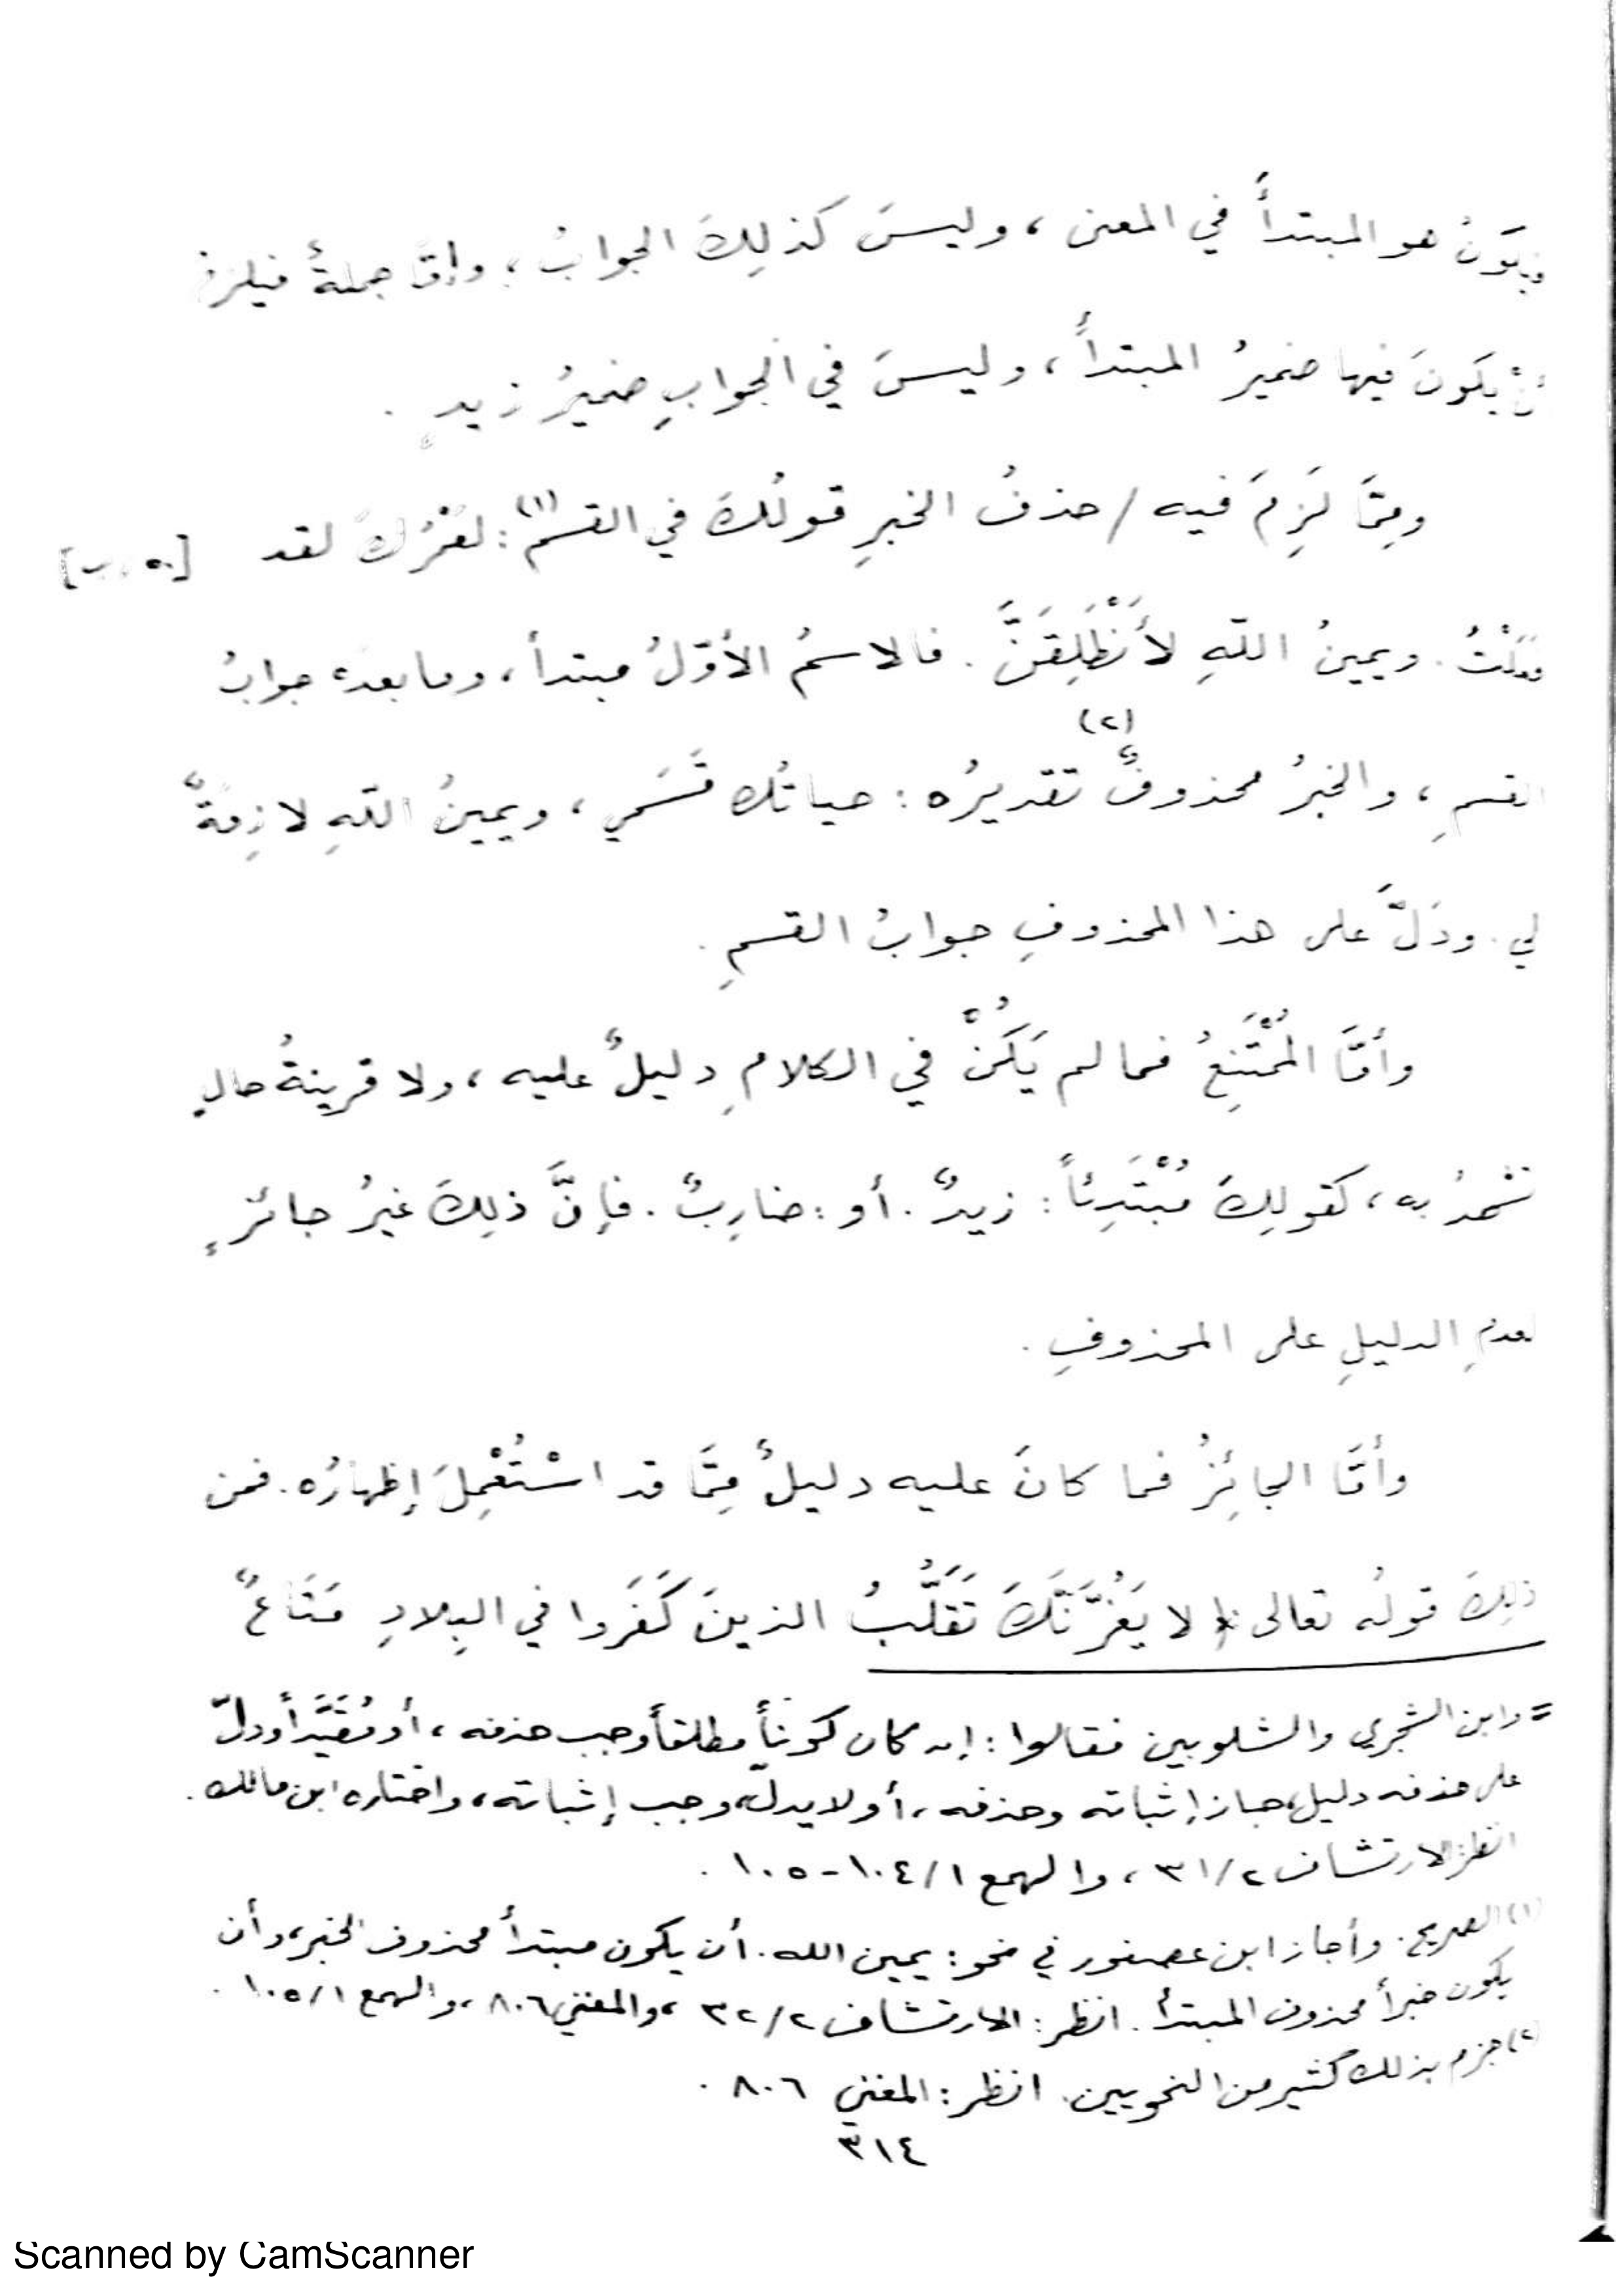 فيكونُ هو المبتدأَ في المعنى ، وليسَ كذلِكَ الجوابُ ، وإمَّا جملةً فيلزمُ
أنْ يكونَ فيها ضميرُ المبتدأَ ، وليسَ في الجوابِ ضميرُ زيدٍ .
ومِمَّا لَزِمَ فيه / حذفُ الخبرِ قولُكَ في القسمِ (١) : لعَمْرُكَ لقد
فعلْتُ . ويمينُ اللهِ لأَنْطَلِقَنَّ . فالاسمُ الأوّلُ مبتدأ ، وما بعدَه جوابُ
القسمِ ، والخبرُ محذوفٌ (٢) تقديرُه : حياتُك قَسَمي ، ويمينُ اللهِ لازِمةٌ
لي . ودَلَّ على هذا المحذوفِ جوابُ القسمِ .
وأمَّا المُمْتَنِعُ فما لم يَكُنْ في الكلامِ دليلٌ عليه ، ولا قرينةُ حالٍ
تشهدُ به ، كقولِكَ مُبْتَدِئاً : زيدٌ . أو : ضارِبٌ . فإنَّ ذلِكَ غيرُ جائزٍ
لعدمِ الدليلِ على المحذوفِ .
وأمَّا الجائِزُ فما كانَ عليه دليلٌ مِمَّا قد اسْتُعْمِلَ إظهارُه . فمن
ذلِكَ قولُه تعالى ﴿ لا يَغُرَّنَّكَ تَقَلُّبُ الذينَ كَفَرُوا في البِلادِ مَتَاعٌ
= وابن الشجري والشلوبين فقالوا : إن كان كوناً مطلقاً وجب حذفه ، أو مُقَيَّداً ودلّ
على حذفه دليل، جاز إثباته وحذفه ، أو لا يدلّ، وجب إثباته ، واختاره ابن مالك .
انظر: الارتشاف ٣١/٢ ، والهمع ١٠٤/١ - ١٠٥ .
(١) الصريح . وأجاز ابن عصفور في نحو : يمين الله . أن يكون مبتدأ محذوف الخبر، وأن
يكون خبراً محذوف المبتدأ . انظر : الارتشاف ٣٢/٢ ، والمغني ٨٠٦ ، والهمع ١٠٥/١ .
(٢) جزم بذلك كثير من النحويين . انظر : المغني ٨٠٦ .
٣١٤
Scanned by CamScanner